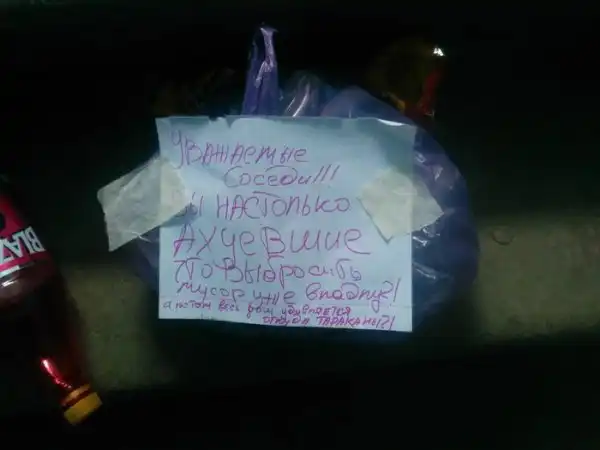 Уважаемые
Соседи!!!
Вы настолько
АХУЕВШИЕ
ЧТо Выбросить
мусор уже впадлу?!
а потом весь дом удивляется
откуда ТАРАКАНЫ?!
BLAZ